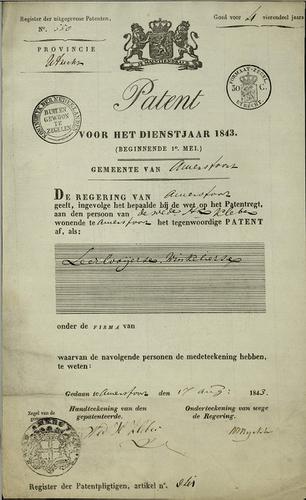 Register der uitgegeven Patenten,
N.° 550
Goed voor 4 vierendeel jaars
PROVINCIE
Utrecht
Patent
BUITEN
GEWOON
TE
ZEGELEN
30 C.
UTRECHT
VOOR HET DIENSTJAAR 1843.
(BEGINNENDE 1e. MEI.)
GEMEENTE VAN Amersfoort
DE REGERING VAN Amersfoort
geeft, ingevolge het bepaalde bij de wet op het Patentregt,
aan den persoon van de wed
wonende te Amersfoort het tegenwoordige PATENT
af, als:
Leerlooijersse Winkelierse
onder de FIRMA van
waarvan de navolgende personen de medeteekening hebben,
te weten:
Gedaan te Amersfoort den 17 aug 1843
Zegel van de
Handteekening van den
gepatenteerde.
Onderteekening van wege
de Regering.
Register der Patentpligtigen, artikel n°.